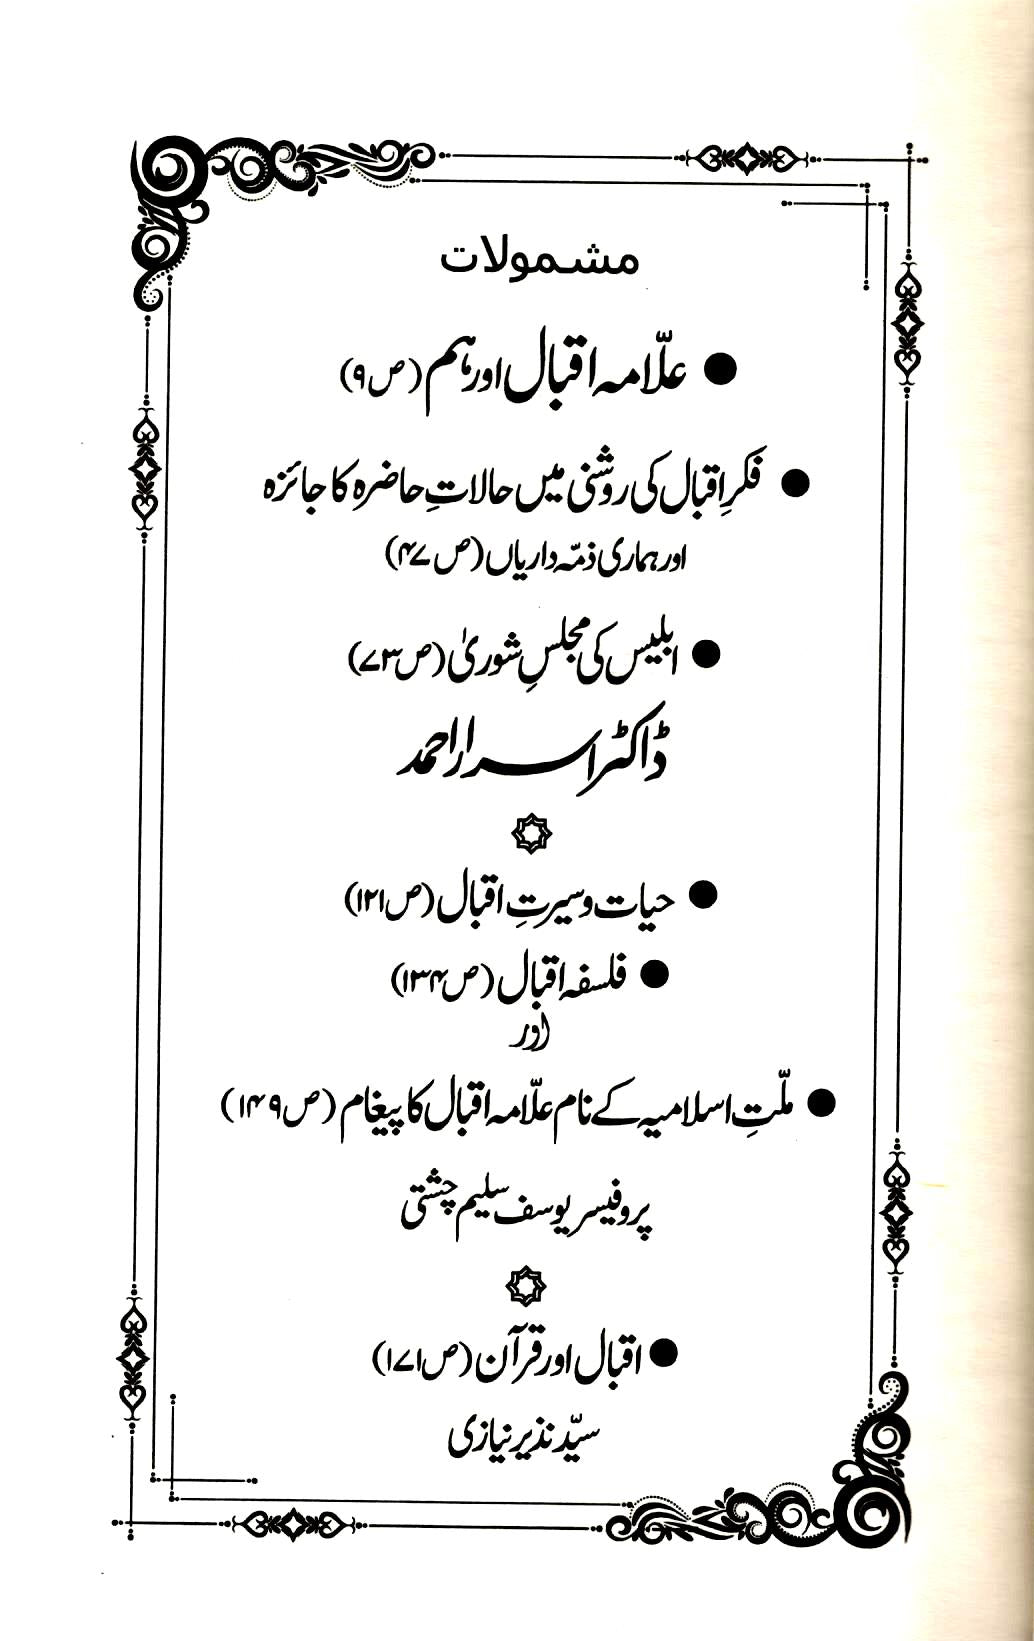 مشمولات
● علّامہ اقبال اور ہم (ص۹)
● فکرِ اقبال کی روشنی میں حالاتِ حاضرہ کا جائزہ
اور ہماری ذمّہ داریاں (ص۴۷)
● ابلیس کی مجلسِ شوریٰ (ص۷۳)
ڈاکٹر اسرار احمد
● حیات و سیرتِ اقبال (ص۱۲۱)
● فلسفہ اقبال (ص۱۳۴)
اور
● ملّتِ اسلامیہ کے نام علّامہ اقبال کا پیغام (ص۱۴۹)
پروفیسر یوسف سلیم چشتی
● اقبال اور قرآن (ص۱۷۱)
سیّد نذیر نیازی